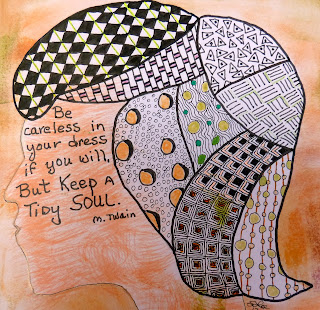 Be
careless in
your dress
if you will,
But Keep A
Tidy SOUL.
M. Twain